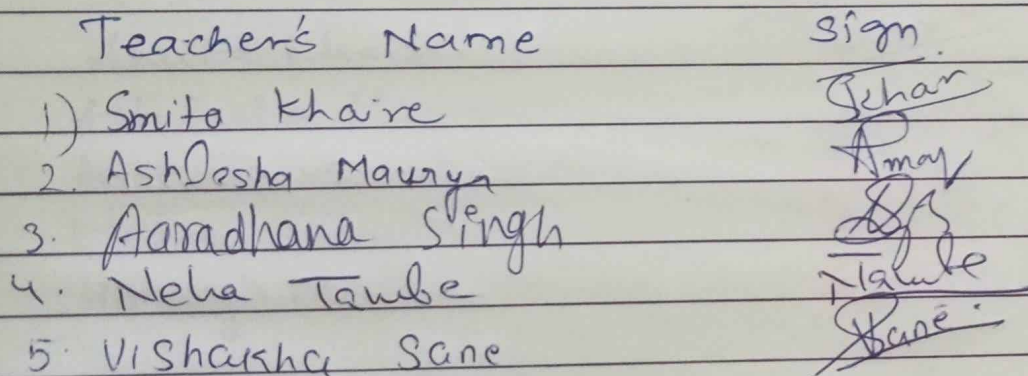 Teacher's Name Sign.
1) Smita Khaire
2. Ashlesha Maurya
3. Aaradhana Singh
4. Neha Tambe Tambe
5. Vishakha Sane Sane